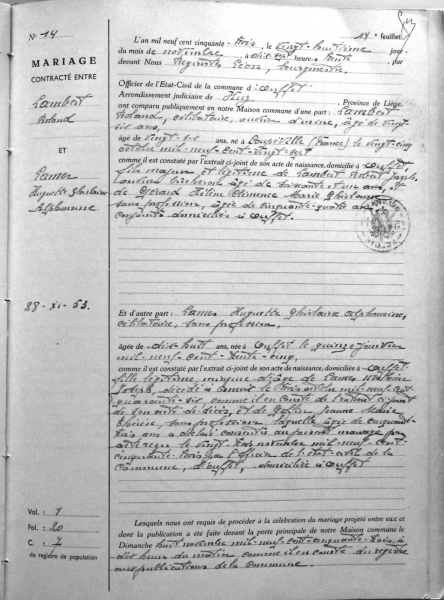 N° 14
MARIAGE
CONTRACTÉ ENTRE
Lambert
Roland
ET
Lamer
Huguette Ghislaine
Alphonsine
28-XI-53.
Vol. : 1
Fol. : 20
C. : 7
du registre de population
14e feuillet
L'an mil neuf cent cinquante-trois, le vingt-huitième jour
du mois de novembre à dix heures trente, par
devant Nous Léon, bourgmestre,
Officier de l'Etat-Civil de la commune d'Ouffet
Arrondissement judiciaire de Huy, Province de Liège,
ont comparu publiquement en notre Maison commune d'une part : Lambert
Roland, célibataire, ouvrier d'usine, âgé de vingt-
six ans,
âgé de vingt-six ans, né à (France) le vingt-cinq
octobre mil-neuf-cent-vingt-sept
comme il est constaté par l'extrait ci-joint de son acte de naissance, domicilié à Ouffet
fils majeur et légitime de Lambert Joseph,
ouvrier bûcheron, âgé de soixante et un ans, et
de Gérard Hélène Clémence Marie Ghislaine
sans profession, âgée de cinquante-quatre ans,
conjoints domiciliés à Ouffet.
Et d'autre part : Lamer Huguette Ghislaine Alphonsine,
célibataire, sans profession,
âgée de dix-huit ans, née à Ouffet le quinze janvier
mil-neuf-cent-trente-cinq,
comme il est constaté par l'extrait ci-joint de son acte de naissance, domiciliée à Ouffet
fille légitime, mineure d'âge de Lamer
Joseph, décédé à le trois octobre mil neuf cent
quarante-six, comme il en conste de l'extrait ci-joint
de son acte de décès, et de Jeanne Marie
sans profession, laquelle âgée de cinquante-
trois ans a déclaré consentir au présent mariage par
acte reçu le vingt-trois novembre mil-neuf-cent-
cinquante-trois par l'officier de l'état-civil de la
commune d'Ouffet, domiciliée à Ouffet
Lesquels nous ont requis de procéder à la célébration du mariage projeté entre eux et
dont la publication a été faite devant la porte principale de notre Maison commune le
Dimanche huit novembre mil-neuf-cent-cinquante-trois, à
dix heures du matin comme il en conste du registre
aux publications de la commune.